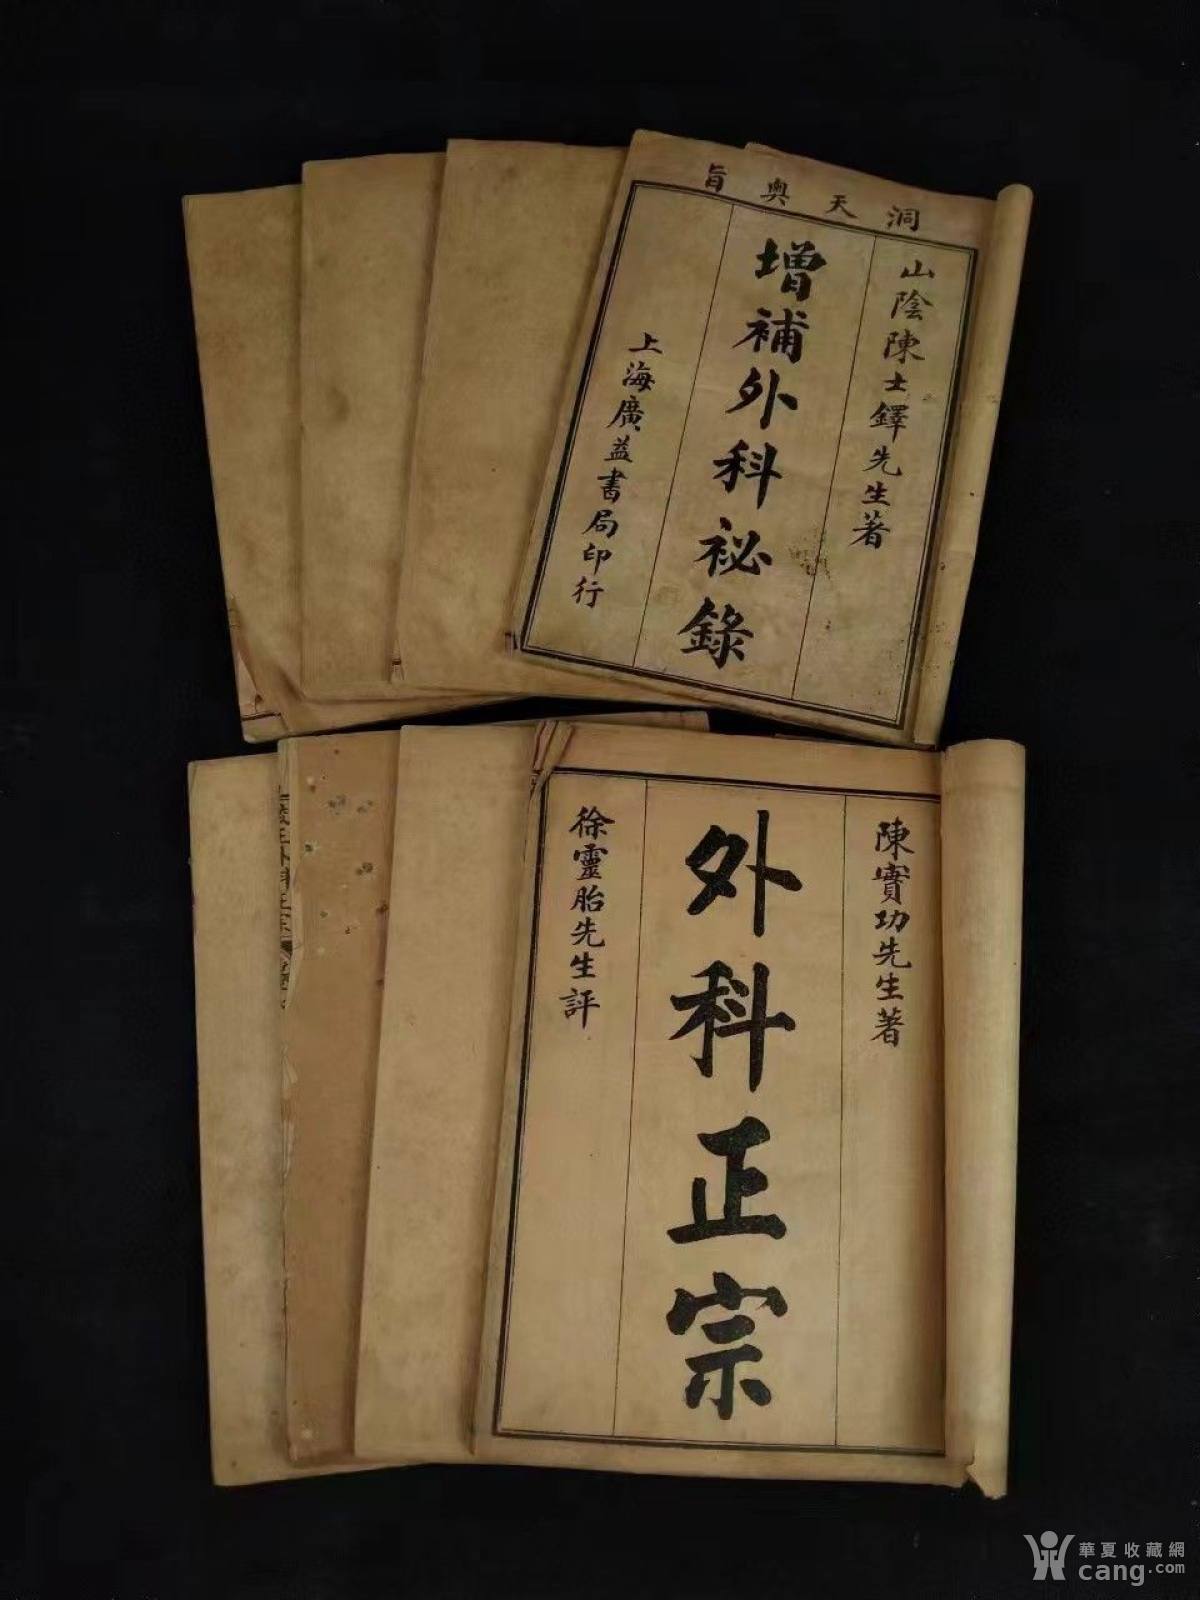 洞天奧旨
山陰陳士鐸先生著
增補外科祕錄
上海廣益書局印行
陳實功先生著
外科正宗
徐靈胎先生評
華夏收藏網
cang.com